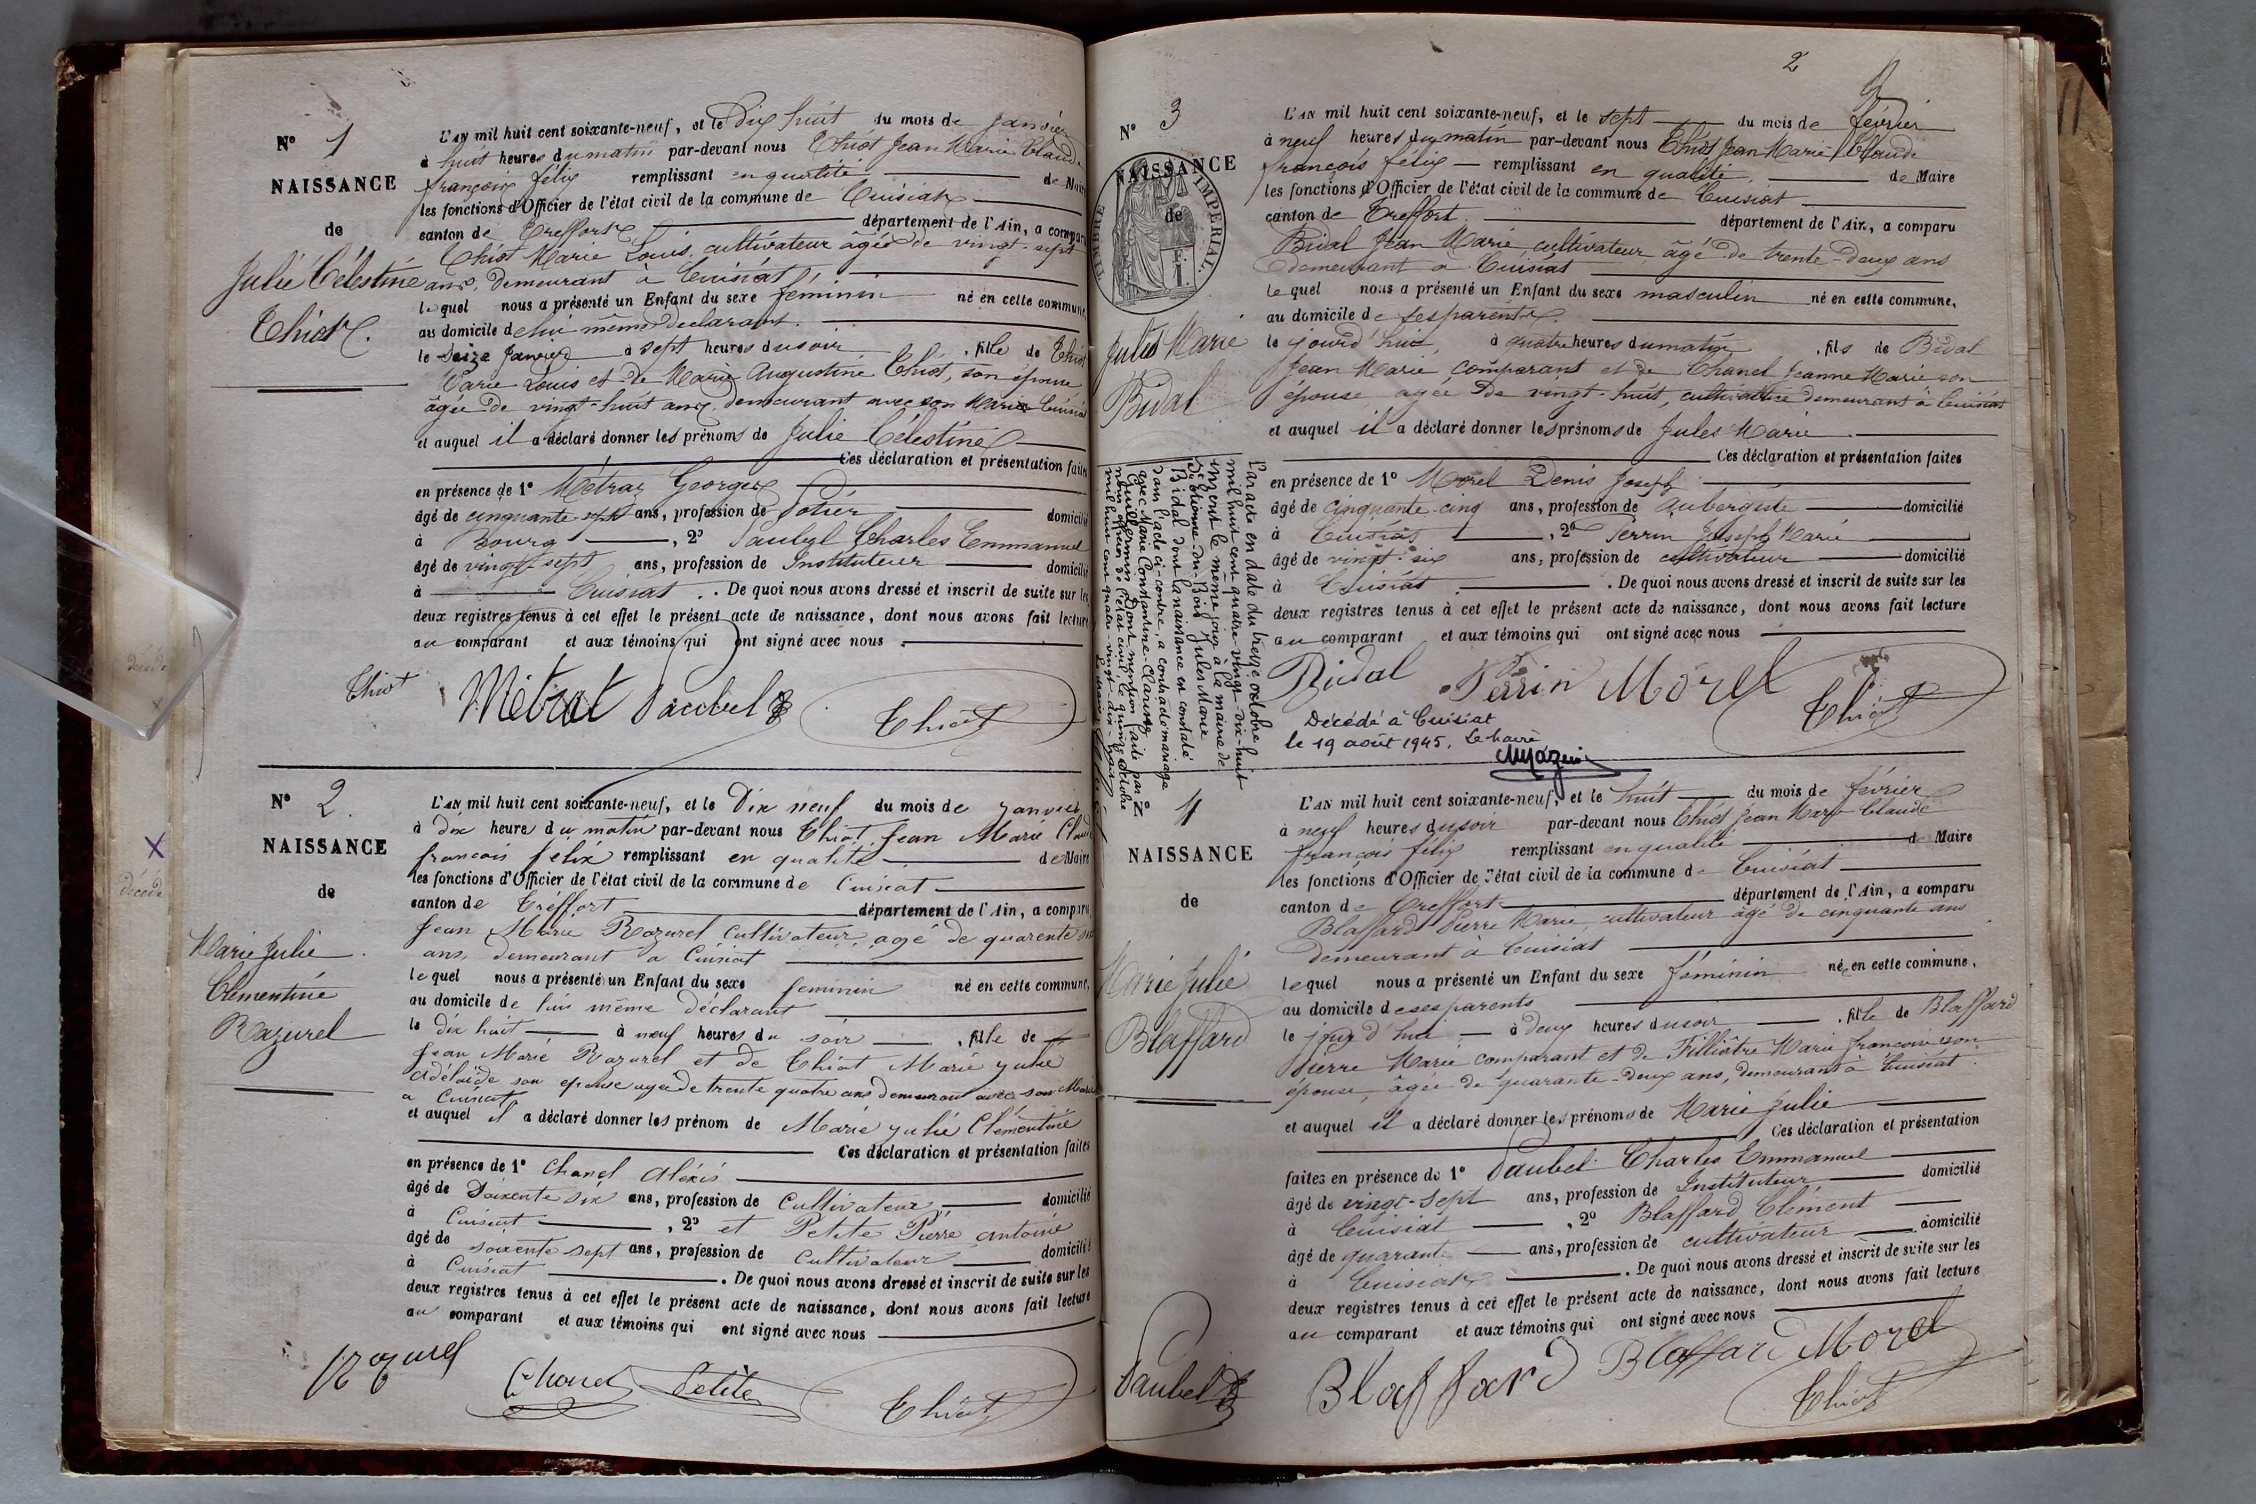 N° 1
NAISSANCE
de
Julie Célestine
Thiot.
L'AN mil huit cent soixante-neuf, et le Dix huit du mois de Janvier
à huit heures du matin par-devant nous Thiot Jean Marie Claude
françois félix remplissant en qualité de Maire
les fonctions d'Officier de l'état civil de la commune de Cuisiat
canton de Treffort département de l'Ain, a comparu
Thiot Marie Louis, cultivateur âgé de vingt-sept
ans, demeurant à Cuisiat,
lequel nous a présenté un Enfant du sexe féminin né en cette commune,
au domicile de lui même déclarant.
le seize Janvier à sept heures du soir, fille de Thiot
Marie Louis et de Marie Augustine Thiot, son épouse
âgée de vingt-huit ans, demeurant avec son Mari à Cuisiat
et auquel il a déclaré donner les prénoms de Julie Célestine
Ces déclaration et présentation faites
en présence de 1° Métraz Georges
âgé de cinquante sept ans, profession de Potier domicilié
à Bourg, 2° Paubel Charles Emmanuel
âgé de vingt-sept ans, profession de Instituteur domicilié
à Cuisiat. De quoi nous avons dressé et inscrit de suite sur les
deux registres tenus à cet effet le présent acte de naissance, dont nous avons fait lecture
au comparant et aux témoins qui ont signé avec nous
Thiot Métrat Paubel Thiot
N° 2
NAISSANCE
de
Marie Julie
Clémentine
Razurel
L'AN mil huit cent soixante-neuf, et le Dix neuf du mois de Janvier
à dix heure du matin par-devant nous Thiot, Jean Marie Claude
françois félix remplissant en qualité de Maire
les fonctions d'Officier de l'état civil de la commune de Cuisiat
canton de Tréffort département de l'Ain, a comparu
Jean Marie Razurel Cultivateur, agé de quarente six
ans, demeurant à Cuisiat
lequel nous a présenté un Enfant du sexe feminin né en cette commune,
au domicile de lui même déclarant
le dix huit à neuf heures du soir, fille de
Jean Marie Razurel et de Thiot Marie Julie
Adélaïde son epouse agée de trente quatre ans demeurant avec son Mari
a Cuisiat
et auquel il a déclaré donner les prénom de Marie Julie Clémentine
Ces déclaration et présentation faites
en présence de 1° Chanel Aléxis
âgé de Soixente six ans, profession de Cultivateur domicilié
à Cuisiat, 2° et Petite Pierre antoine
âgé de soixente sept ans, profession de Cultivateur domicilié
à Cuisiat. De quoi nous avons dressé et inscrit de suite sur les
deux registres tenus à cet effet le présent acte de naissance, dont nous avons fait lecture
au comparant et aux témoins qui ont signé avec nous
Razurel Chanel Petite Thiot
décédé
X
décédé
2
N° 3
NAISSANCE
de
TIMBRE IMPERIAL
Jules Marie
Bidal
L'AN mil huit cent soixante-neuf, et le sept du mois de février
à neuf heures du matin par-devant nous Thiot Jean Marie Claude
françois félix remplissant en qualité de Maire
les fonctions d'Officier de l'état civil de la commune de Cuisiat
canton de Treffort département de l'Ain, a comparu
Bidal Jean Marie, cultivateur, âgé de trente-deux ans
demeurant à Cuisiat
lequel nous a présenté un Enfant du sexe masculin né en cette commune,
au domicile de ses parents
le jourd'hui, à quatre heures du matin, fils de Bidal
Jean Marie comparant et de Chanel Jeanne Marie son
épouse, agée de vingt-huit, cultivatrice demeurant à Cuisiat
et auquel il a déclaré donner les prénoms de Jules Marie.
Ces déclaration et présentation faites
en présence de 1° Morel Denis Joseph
âgé de cinquante-cinq ans, profession de Aubergiste domicilié
à Cuisiat, 2° Perrin Joseph Marie
âgé de vingt-six ans, profession de cultivateur domicilié
à Cuisiat. De quoi nous avons dressé et inscrit de suite sur les
deux registres tenus à cet effet le présent acte de naissance, dont nous avons fait lecture
au comparant et aux témoins qui ont signé avec nous
Bidal Perrin Morel Thiot
Décédé à Cuisiat
le 19 août 1945. Le Maire
Par acte en date du treize octobre
mil huit cent quatre-vingt-dix-huit
inscrit le même jour à la mairie de
St Etienne-du-Bois Jules Marie
Bidal dont la naissance est constaté
dans l'acte ci-contre, a contracté mariage
avec Marie Constantine Claire
Guillermin Dont mention faite par
nous officier de l'état civil le quinze octobre
mil huit cent quatre-vingt-dix-huit
Le Maire
4
NAISSANCE
de
Marie Julie
Blaffard
L'AN mil huit cent soixante-neuf, et le huit du mois de février
à neuf heures du soir par-devant nous Thiot Jean Marie Claude
françois félix remplissant en qualité de Maire
les fonctions d'Officier de l'état civil de la commune de Cuisiat
canton de Treffort département de l'Ain, a comparu
Blaffard Pierre Marie, cultivateur âgé de cinquante ans
demeurant à Cuisiat
lequel nous a présenté un Enfant du sexe féminin né en cette commune,
au domicile de ses parents
le jourd'hui à deux heures du soir, fille de Blaffard
Pierre Marie comparant et de Filliâtre Marie françoise son
épouse, âgée de quarante-deux ans, demeurant à Cuisiat
et auquel il a déclaré donner les prénoms de Marie Julie
Ces déclaration et présentation
faites en présence de 1° Paubel Charles Emmanuel
âgé de vingt-sept ans, profession de Instituteur domicilié
à Cuisiat, 2° Blaffard Clément
âgé de quarante ans, profession de cultivateur domicilié
à Cuisiat. De quoi nous avons dressé et inscrit de suite sur les
deux registres tenus à cet effet le présent acte de naissance, dont nous avons fait lecture
au comparant et aux témoins qui ont signé avec nous
Paubel Blaffard Blaffard Morel
Thiot